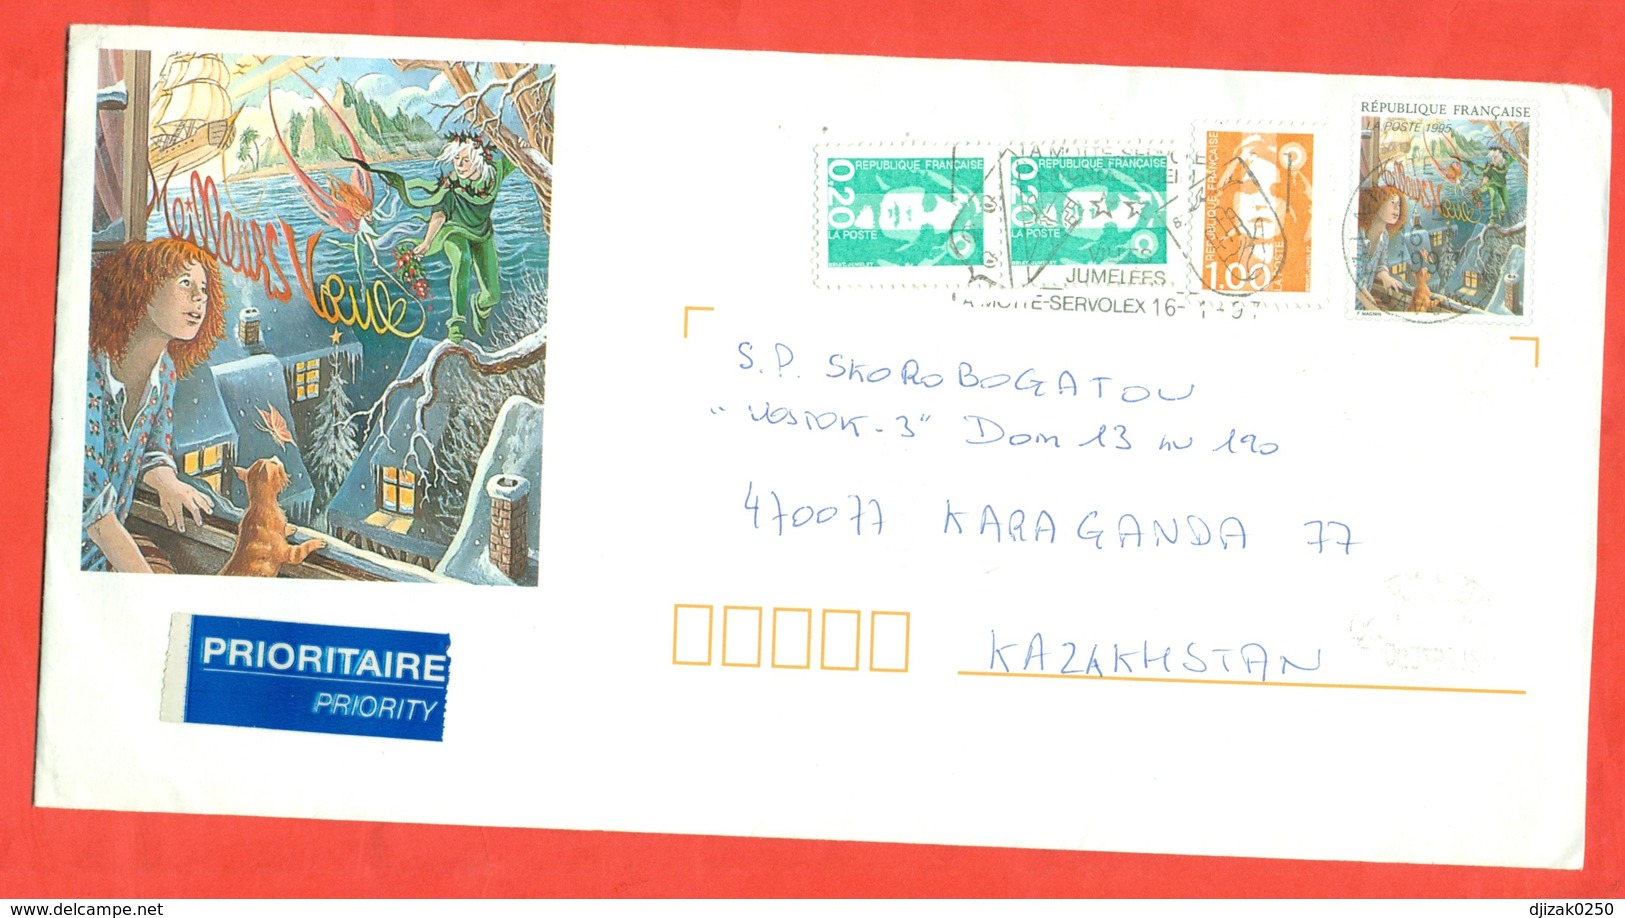 Meilleurs Vœux
RÉPUBLIQUE FRANÇAISE
LA POSTE 1995
0,20
RÉPUBLIQUE FRANÇAISE
LA POSTE
0,20
RÉPUBLIQUE FRANÇAISE
LA POSTE
RÉPUBLIQUE FRANÇAISE
1,00
LA POSTE
JUMELÉES
LA MOTTE-SERVOLEX 16-1-97
S.P. SKOROBOGATOV
"VOSTOK-3" Dom 13 kv 190
470077 KARAGANDA 77
KAZAKHSTAN
PRIORITAIRE
PRIORITY
djizak0250